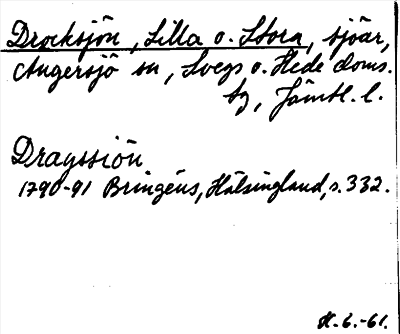 Drocksjön, Lilla o. Stora, sjöar,
Ängersjö sn, Svegs o. Hede doms.
tg, Jämtl. l.
Dragssiön
1790-91 Bringéus, Hälsingland, s. 332.
H. 6.-61.